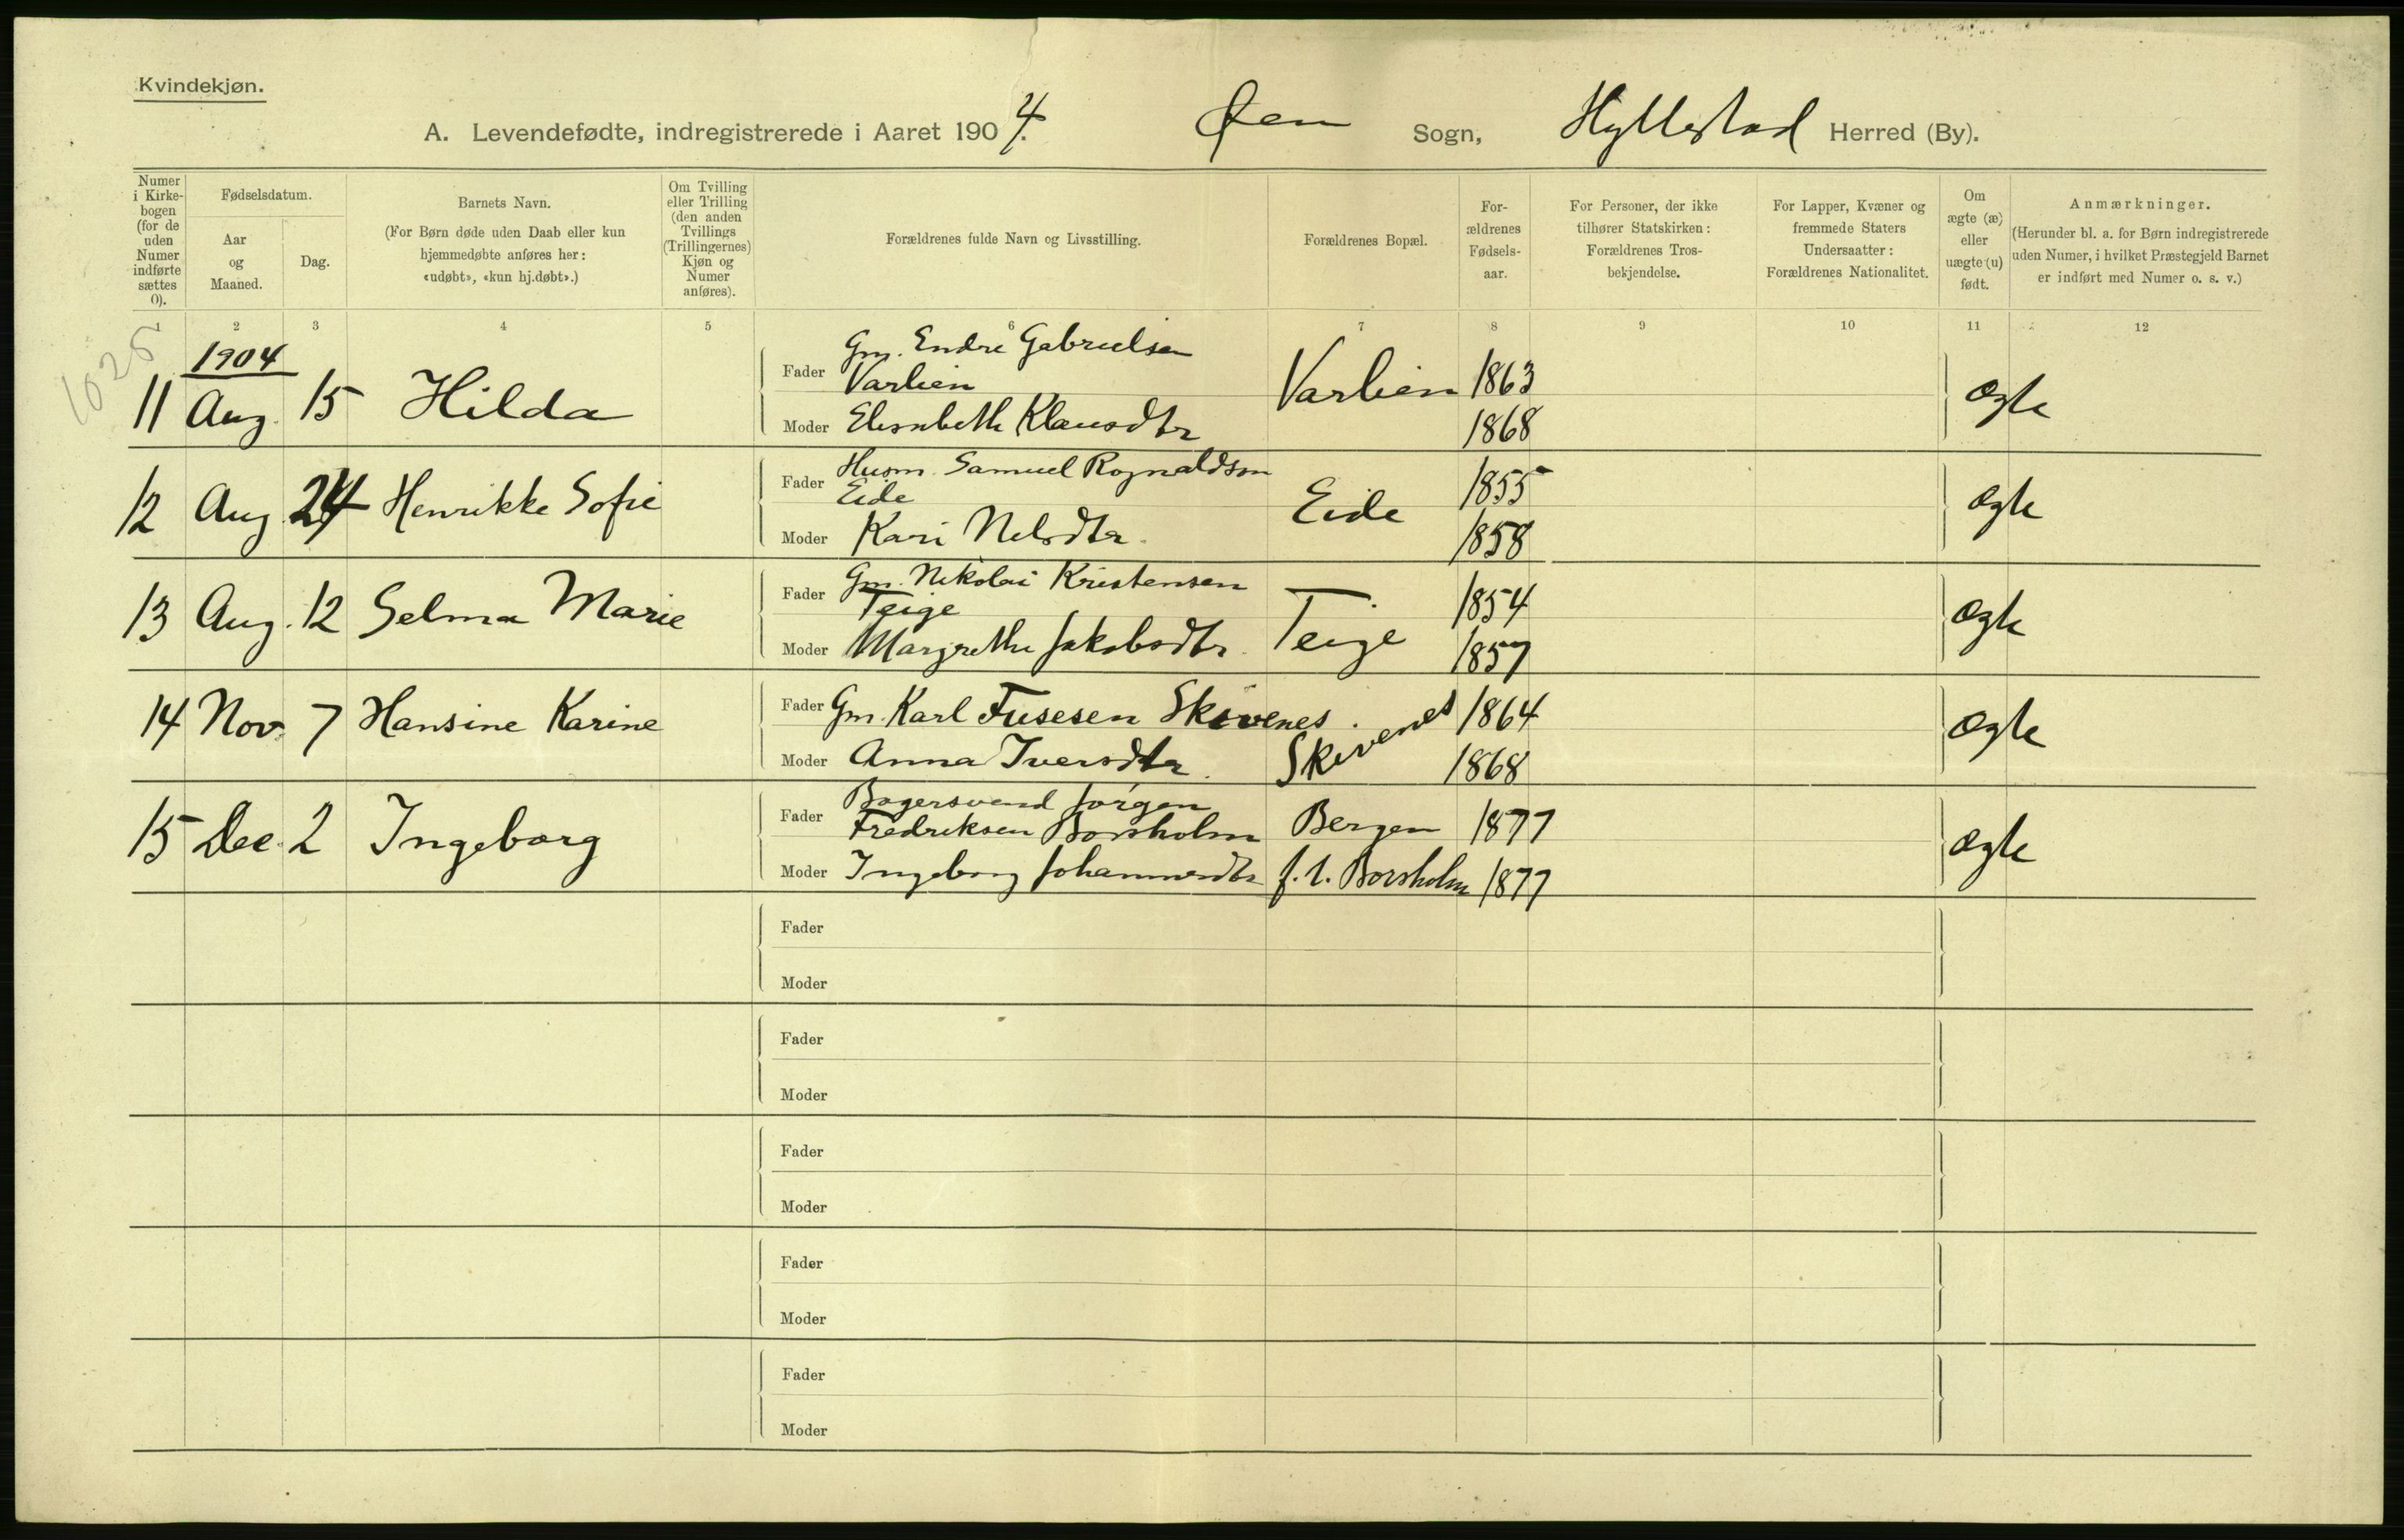 Kvindekjøn.
A. Levendefødte, indregistrerede i Aaret 1904. Øen Sogn, Hyllestad Herred (By).
Numer i Kirkebogen (for de uden Numer indførte sættes 0).
Fødselsdatum.
Aar og Maaned.
Dag.
Barnets Navn.
(For Børn døde uden Daab eller kun hjemmedøbte anføres her: «udøbt», «kun hj.døbt».)
Om Tvilling eller Trilling (den anden Tvillings (Trillingernes) Kjøn og Numer anføres).
Forældrenes fulde Navn og Livsstilling.
Forældrenes Bopæl.
Forældrenes Fødselsaar.
For Personer, der ikke tilhører Statskirken: Forældrenes Trosbekjendelse.
For Lapper, Kvæner og fremmede Staters Undersaatter: Forældrenes Nationalitet.
Om ægte (æ) eller uægte (u) født.
Anmærkninger.
(Herunder bl. a. for Børn indregistrerede uden Numer, i hvilket Præstegjeld Barnet er indført med Numer o. s. v.)
1 2 3 4 5 6 7 8 9 10 11 12
1025
1904
11 Aug. 15 Hilda
Fader Gm. Endre Gabrielsen Varlien Varlien 1863 Ægte
Moder Elisabeth Klausdtr 1868
12 Aug. 24 Henrikke Sofie
Fader Husm. Samuel Rognaldsen Eide Eide 1855 Ægte
Moder Kari Nelsdtr. 1858
13 Aug. 12 Selma Marie
Fader Gm. Nikolai Kristensen Teige Teige 1854 Ægte
Moder Margrethe Jakobsdtr. 1857
14 Nov. 7 Hansine Karine
Fader Gm. Karl Fusesen Skivenes. Skivenes 1864 Ægte
Moder Anna Iversdtr. 1868
15 Dec. 2 Ingeborg
Fader Bagersvend Jørgen Fredriksen Borsholm Bergen 1877 Ægte
Moder Ingeborg Johannesdtr f. t. Borsholm 1877
Fader
Moder
Fader
Moder
Fader
Moder
Fader
Moder
Fader
Moder